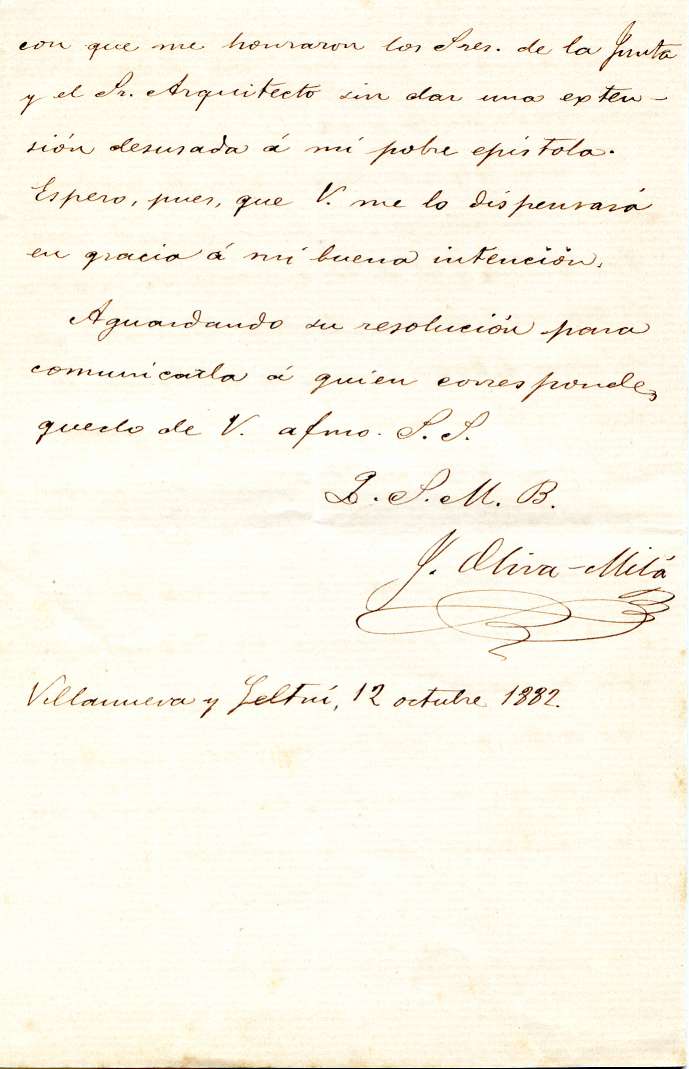 con que me honraron los Sres. de la Junta
y el Sr. Arquitecto sin dar una exten-
sión desusada á mi pobre epístola.
Espero, pues, que V. me lo dispensará
en gracia á mi buena intención.
Aguardando su resolución para
comunicarla á quien corresponde,
quedo de V. afmo. S. S.
Q. S. M. B.
J. Oliva-Milá
Villanueva y Geltrú, 12 octubre 1882.